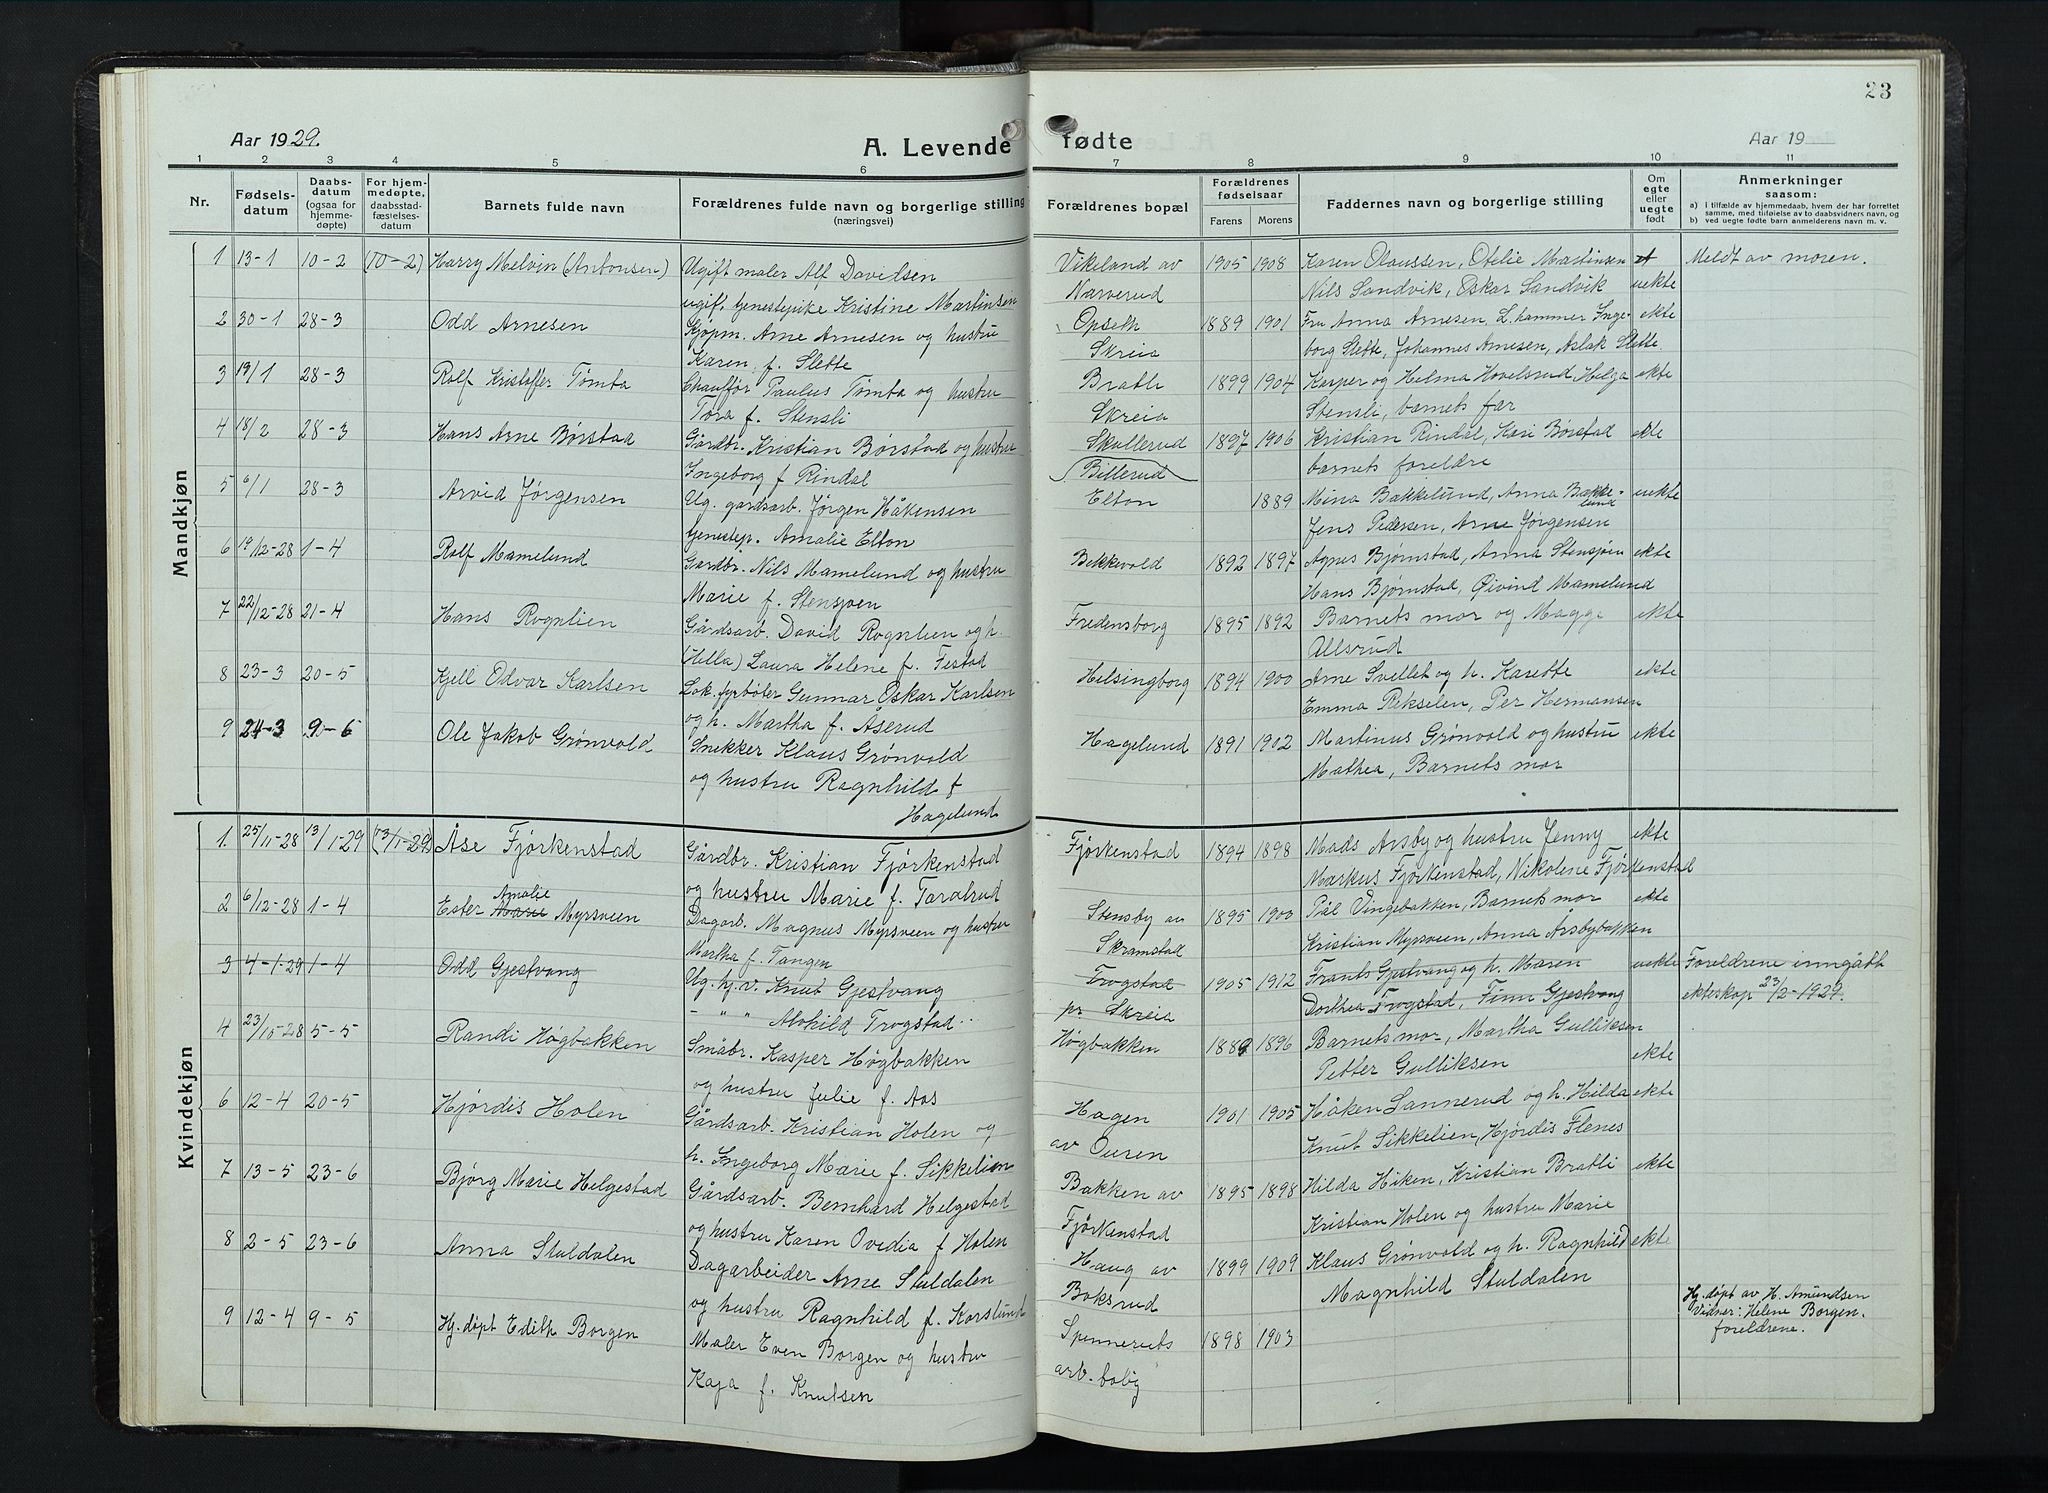 23
Aar 1929.
A. Levende fødte
Aar 19
1 2 3 4 5 6 7 8 9 10 11
Nr. Fødsels-datum Daabs-datum (ogsaa for hjemme-døpte) For hjem-medøpte, daabsstad-fæstelses-datum Barnets fulde navn Forældrenes fulde navn og borgerlige stilling (næringsvei)
Forældrenes bopæl Forældrenes fødselsaar Farens Morens Faddernes navn og borgerlige stilling Om egte eller uegte født Anmerkninger saasom:
a) I tilfælde av hjemmedaab, hvem der har forrettet samme, med tilføielse av to daabsvidners navn, og
b) ved uegte fødte barn anmelderens navn m. v.
Mandkjøn
1 13-1 10-2 (10-2) Harry Melvin (Antonsen) Ugift maler Alf Davidsen Vikeland av 1905 1908 Karen Olaussen, Otelie Martinsen Meldt av moren.
ugif. tjenestepike Kristine Martinsen Narverud Nils Sandvik, Oskar Sandvik uekte
2 30-1 28-3 Odd Arnesen Kjøpm. Arne Arnesen og hustru Opseth 1889 1901 Fru Anna Arnesen, L.hammer Inge- ekte
Karen f. Slette Skreia borg Slette, Johannes Arnesen, Aslak Slette.
3 19/1 28-3 Rolf Kristoffer Tømta Chauffør Paulus Tømta og hustru Brattli 1899 1904 Kasper og Helma Hovelsrud, Helga ekte
Tora f. Stensli Skreia Stensli, barnets far
4 18/2 28-3 Hans Arne Børstad Gårdbr. Kristian Børstad og hustru Skullerud 1897 1906 Kristian Rindal, Kari Børstad ekte
Ingeborg f Rindal (Billerud barnets foreldre
5 6/1 28-3 Arvid Jørgensen Ug. gårdsarb. Jørgen Håkensen Elton 1889 Mina Bakkelund, Anna Bakke-lund uekte
tjenestep. Amalie Elton Jens Pedersen, Arne Jørgensen
6 19/12-28 1-4 Rolf Mamelund Gårdbr. Nils Mamelund og hustru Bekkevold 1892 1897 Agnes Bjørnstad, Anna Stensjøen ekte
Marie f. Stensjøen Hans Bjørnstad, Øivind Mamelund
7 22/12-28 21-4 Hans Rognlien Gårdsarb. David Rognlien og h. Fredensborg 1895 1892 Barnets mor og Magga ekte
(Hella) Laura Helene f. Festad Allsrud
8 23-3 20-5 Kjell Odvar Karlsen Lok. fyrbøter Gunnar Oskar Karlsen Helsingborg 1894 1900 Arne Svellet og h. Karette ekte
og h. Martha f. Åserud Emma Rekselen, Per Hermansen
9 24-3 9-6 Ole Jakob Grønvold Snekker Klaus Grønvold Hagelund 1891 1902 Martinus Grønvold og hustru ekte
og hustru Ragnhild f Mathea, Barnets mor
Hagelund
Kvindekjøn
1. 25/11-28 13/1-29 (13/1-29) Åse Fjørkenstad Gårdbr. Kristian Fjørkenstad Fjørkenstad 1894 1898 Mads Arsby og hustru Jenny ekte
og hustru Marie f. Taralrud Markus Fjørkenstad, Nikolene Fjørkenstad
2 6/12-28 1-4 Ester Marie Amalie Myrsveen Dagarb. Magnus Myrsveen og hustru Stensby av 1895 1900 Pål Vingebakken, Barnets mor ekte
Martha f. Tangen Skramstad Kristian Myrsveen, Anna Årsbybakken
3 4-1-29 1-4 Odd Gjestvang Ug. hj.v. Knut Gjestvang Trogstad 1905 1912 Frants Gjestvang og h. Maren uekte Foreldrene inngått
- " " Alvhild Trogstad pr Skreia Dorthea Trogstad, Finn Gjestvang ekteskap 23/2-1929.
4 23/10-28 5-5 Randi Høgbakken Småbr. Kasper Høgbakken Høgbakken 1889 1896 Barnets mor, Martha Gulliksen
og hustru Julie f. Aas Petter Gulliksen ekte
6 12-4 20-5 Hjørdis Holen Gårdsarb. Kristian Holen og Hagen 1901 1905 Håken Sannerud og h. Hilda ekte
h. Ingeborg Marie f. Sikkelien av Ouren Knut Sikkelien, Hjørdis Flenes
7 13-5 23-6 Bjørg Marie Helgestad Gårdsarb. Bernhard Helgestad Bakken av 1895 1898 Hilda Hiken, Kristian Bratli ekte
og hustru Karen Ovedia f. Holen Fjørkenstad Kristian Holen og hustru Marie
8 2-5 23-6 Anna Stuldalen Dagarbeider Arne Stuldalen Haug av 1899 1909 Klaus Grønvold og h. Ragnhild ekte
og hustru Ragnhild f. Korslund Boksrud Magnhild Stuldalen
9 12-4 9-5 Hj. døpt Edith Borgen Maler Even Borgen og hustru Spinneriets 1898 1903 Hj. døpt av H. Amundsen
Kaja f. Knutsen arb. bolig Vidner: Helene Borgen.
foreldrene.